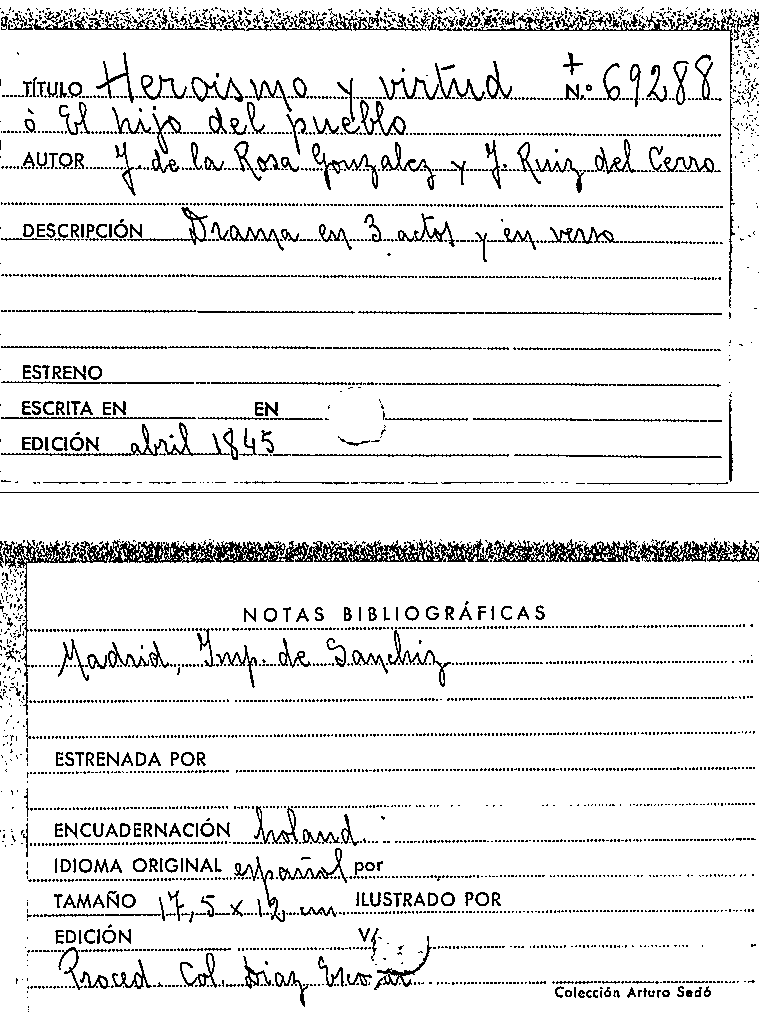 TÍTULO Heroismo y virtud + N.º 69288
ò El hijo del pueblo
AUTOR J. de la Rosa Gonzalez y J. Ruiz del Cerro
DESCRIPCIÓN Drama en 3 actos y en verso
ESTRENO
ESCRITA EN EN
EDICIÓN abril 1845
NOTAS BIBLIOGRÁFICAS
Madrid, Imp. de Sanchiz
ESTRENADA POR
ENCUADERNACIÓN holand.
IDIOMA ORIGINAL español por
TAMAÑO 17,5 x 12 cm ILUSTRADO POR
EDICIÓN
Proced. Col. Diaz Escovar
Colección Arturo Sedó